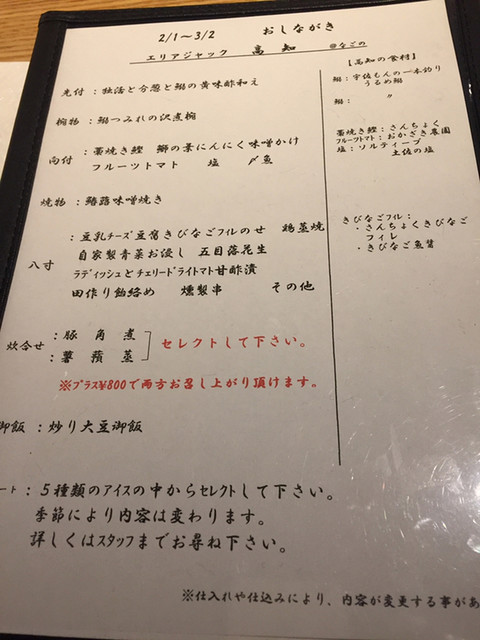 2/1～3/2 おしながき
エリアジャック 高知 @なごの
先付：独活と分葱と鰯の黄味酢和え
椀物：鰯つみれの沢煮椀
向付：藁焼き鰹 鰤の葉にんにく味噌かけ
フルーツトマト 塩 〆魚
焼物：鰆蕗味噌焼き
八寸
：豆乳チーズ豆腐きびなごフィレのせ 鶏菫焼
自家製青菜お浸し 五目落花生
ラディッシュとチェリードライトマト甘酢漬
田作り飴絡め 燻製串 その他
炊合せ
：豚角煮
：薯蕷蒸
セレクトして下さい。
※プラス¥800で両方お召し上がり頂けます。
御飯：炒り大豆御飯
ート：５種類のアイスの中からセレクトして下さい。
季節により内容は変わります。
詳しくはスタッフまでお尋ね下さい。
※仕入れや仕込みにより、内容が変更する事があ
【高知の食材】
鰯：宇佐もんの一本釣り
うるめ鰯
鰯： 〃
藁焼き鰹：さんちょく
フルーツトマト：おかざき農園
塩：ソルティーブ
土佐の塩
きびなごフィレ：
・さんちょくきびなご
フィレ
・きびなご魚醤